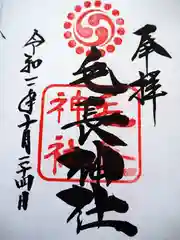 奉拝
毛長神社
神社
令和二年十月二十四日